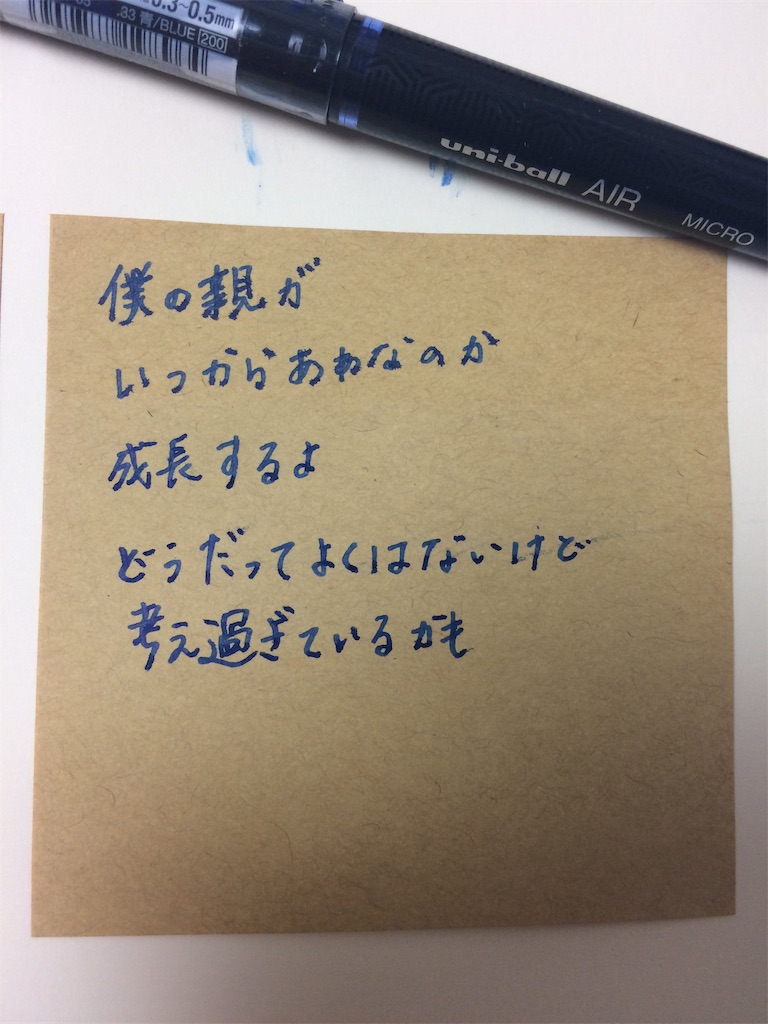 0.3~0.5mm
.33 青/BLUE [200]
uni-ball AIR MICRO
僕の親が
いつからあれなのか
成長するよ
どうだってよくはないけど
考え過ぎているかも